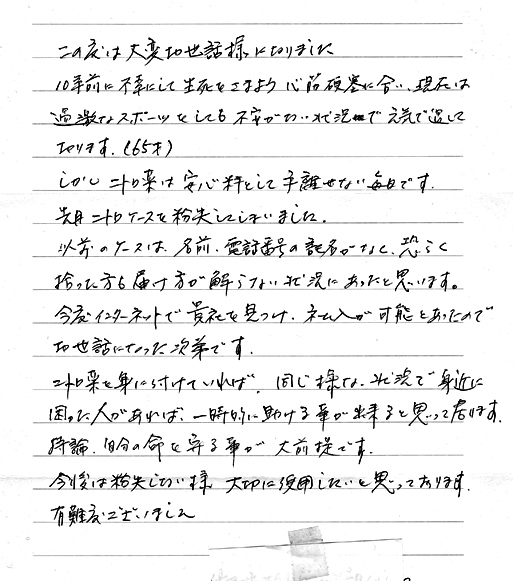 この度は大変お世話様になりました
10年前に不幸にして生死をさまよう心筋硬塞に合い、現在は
過激なスポーツをしても不安がない状況で元気で過して
おります。(65才)
しかしニトロ薬は安心料として手離せない毎日です。
先日ニトロケースを紛失してしまいました。
以前のケースは、名前、電話番号の記名がなく、恐らく
拾った方も届け方が解らない状況にあったと思います。
今度インターネットで貴社を見つけ、ネーム入が可能とあったので
お世話になった次第です。
ニトロ薬を身に付けていれば、同じ様な状況で身近に
困った人があれば、一時的に助ける事が出来ると思って居ります。
持論、自分の命を守る事が大前提です。
今後は紛失しない様、大切に使用したいと思っております。
有難度ございました